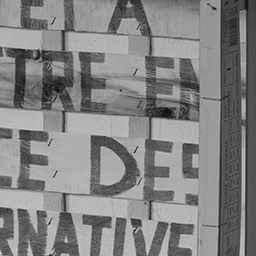 E A
TRE EN
CE DES
RNATIVE